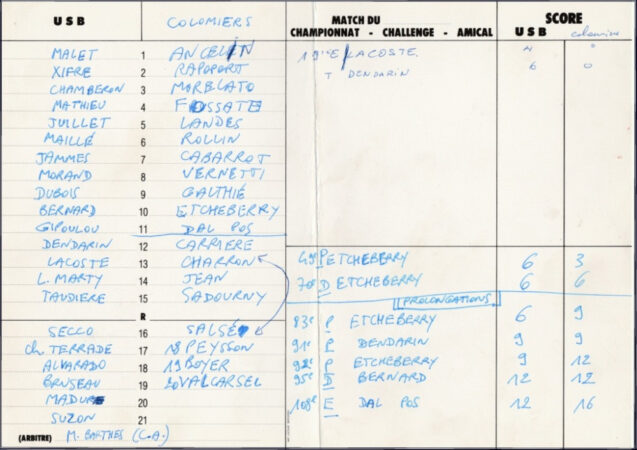 U S B COLOMIERS MATCH DU SCORE
CHAMPIONNAT - CHALLENGE - AMICAL U S B colomiers
MALET 1 ANCELIN LACOSTE 4 0
XIFRE 2 RAPOPORT T DENDARIN 6 0
CHAMBERON 3 MORELATO
MATHIEU 4 FOSSATE
JUILLET 5 LANDES
MAILLÉ 6 ROLLIN
JAMMES 7 CABARROT
MORAND 8 VERNETTI
DUBOIS 9 GALTHIÉ
BERNARD 10 ETCHEBERRY
GIPOULOU 11 DAL POS
DENDARIN 12 CARRIERE
LACOSTE 13 CHARRON P ETCHEBERRY 6 3
L. MARTY 14 JEAN 70e D ETCHEBERRY 6 6
TAUDIERE 15 SADOURNY PROLONGATIONS
R
SECCO 16 SALSÉ 83e P ETCHEBERRY 6 9
Ch. TERRADE 17 18 PEYSSON 91e P DENDARIN 9 9
ALVARADO 18 19 BOYER 92e P ETCHEBERRY 9 12
BRUSEAU 19 20 VALCARSEL 95e D BERNARD 12 12
MADUR 20 108e E DAL POS 12 16
SUZON 21
(ARBITRE) M. BARTHES (C.A.)